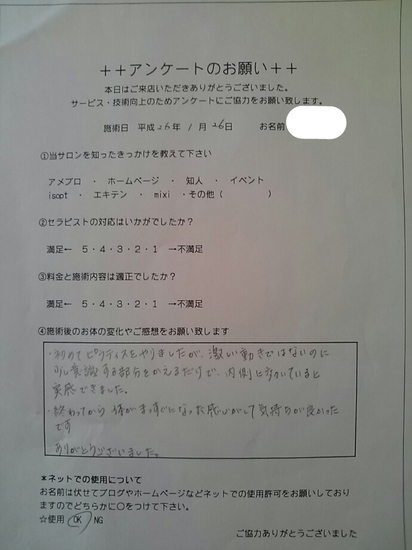 ++アンケートのお願い++
本日はご来店いただきありがとうございました。
サービス・技術向上のためアンケートにご協力をお願い致します。
施術日 平成26年 1月26日 お名前
①当サロンを知ったきっかけを教えて下さい
アメブロ ・ ホームページ ・ 知人 ・ イベント
isopt ・ エキテン ・ mixi ・その他( )
②セラピストの対応はいかがでしたか?
満足← 5・4・3・2・1 →不満足
③料金と施術内容は適正でしたか?
満足← 5・4・3・2・1 →不満足
④施術後のお体の変化やご感想をお願い致します
・初めてピラティスをやりましたが、激しい動きではないのに
少し意識する部分をかえるだけで、内側に効いていると
実感できました。
・終わってから体がまっすぐになった感じがして気持ちが良かった
です
ありがとうございました。
*ネットでの使用について
お名前は伏せてブログやホームページなどネットでの使用許可をお願いしており
ますのでどちらかに○をつけて下さい。
☆使用 OK NG
ご協力ありがとうございました